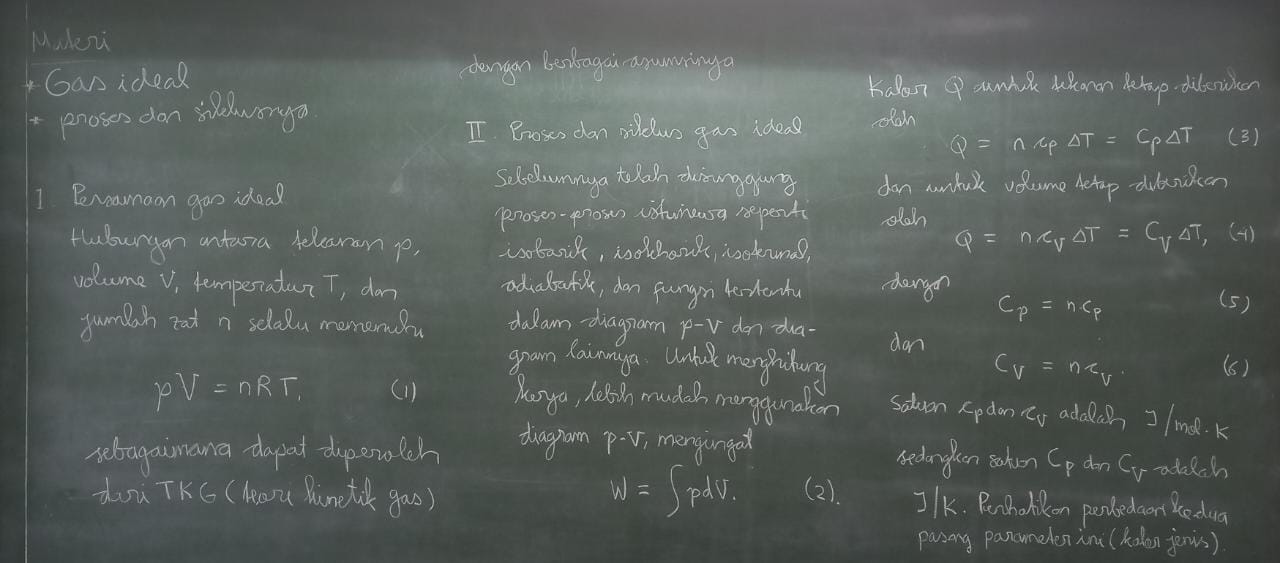 Materi
* Gas ideal
* proses dan siklusnya.
I. Persamaan gas ideal
Hubungan antara tekanan p,
volume V, temperatur T, dan
jumlah zat n selalu memenuhi
pV = nRT, (1)
sebagaimana dapat diperoleh
dari TKG (teori kinetik gas)
dengan berbagai asumsinya
II. Proses dan siklus gas ideal
Sebelumnya telah disinggung
proses-proses istimewa seperti
isobarik, isokhorik, isotermal,
adiabatik, dan fungsi tertentu
dalam diagram p-V dan dia-
gram lainnya. Untuk menghitung
kerja, lebih mudah menggunakan
diagram p-V, mengingat
W = ∫ p dV. (2).
Kalor Q untuk tekanan tetap diberikan
oleh
Q = n c_p ΔT = C_p ΔT (3)
dan untuk volume tetap diberikan
oleh
Q = n c_v ΔT = C_v ΔT, (4)
dengan
C_p = n c_p (5)
dan
C_v = n c_v. (6)
Satuan c_p dan c_v adalah J/mol·K
sedangkan satuan C_p dan C_v adalah
J/K. Perhatikan perbedaan kedua
pasang parameter ini (kalor jenis).